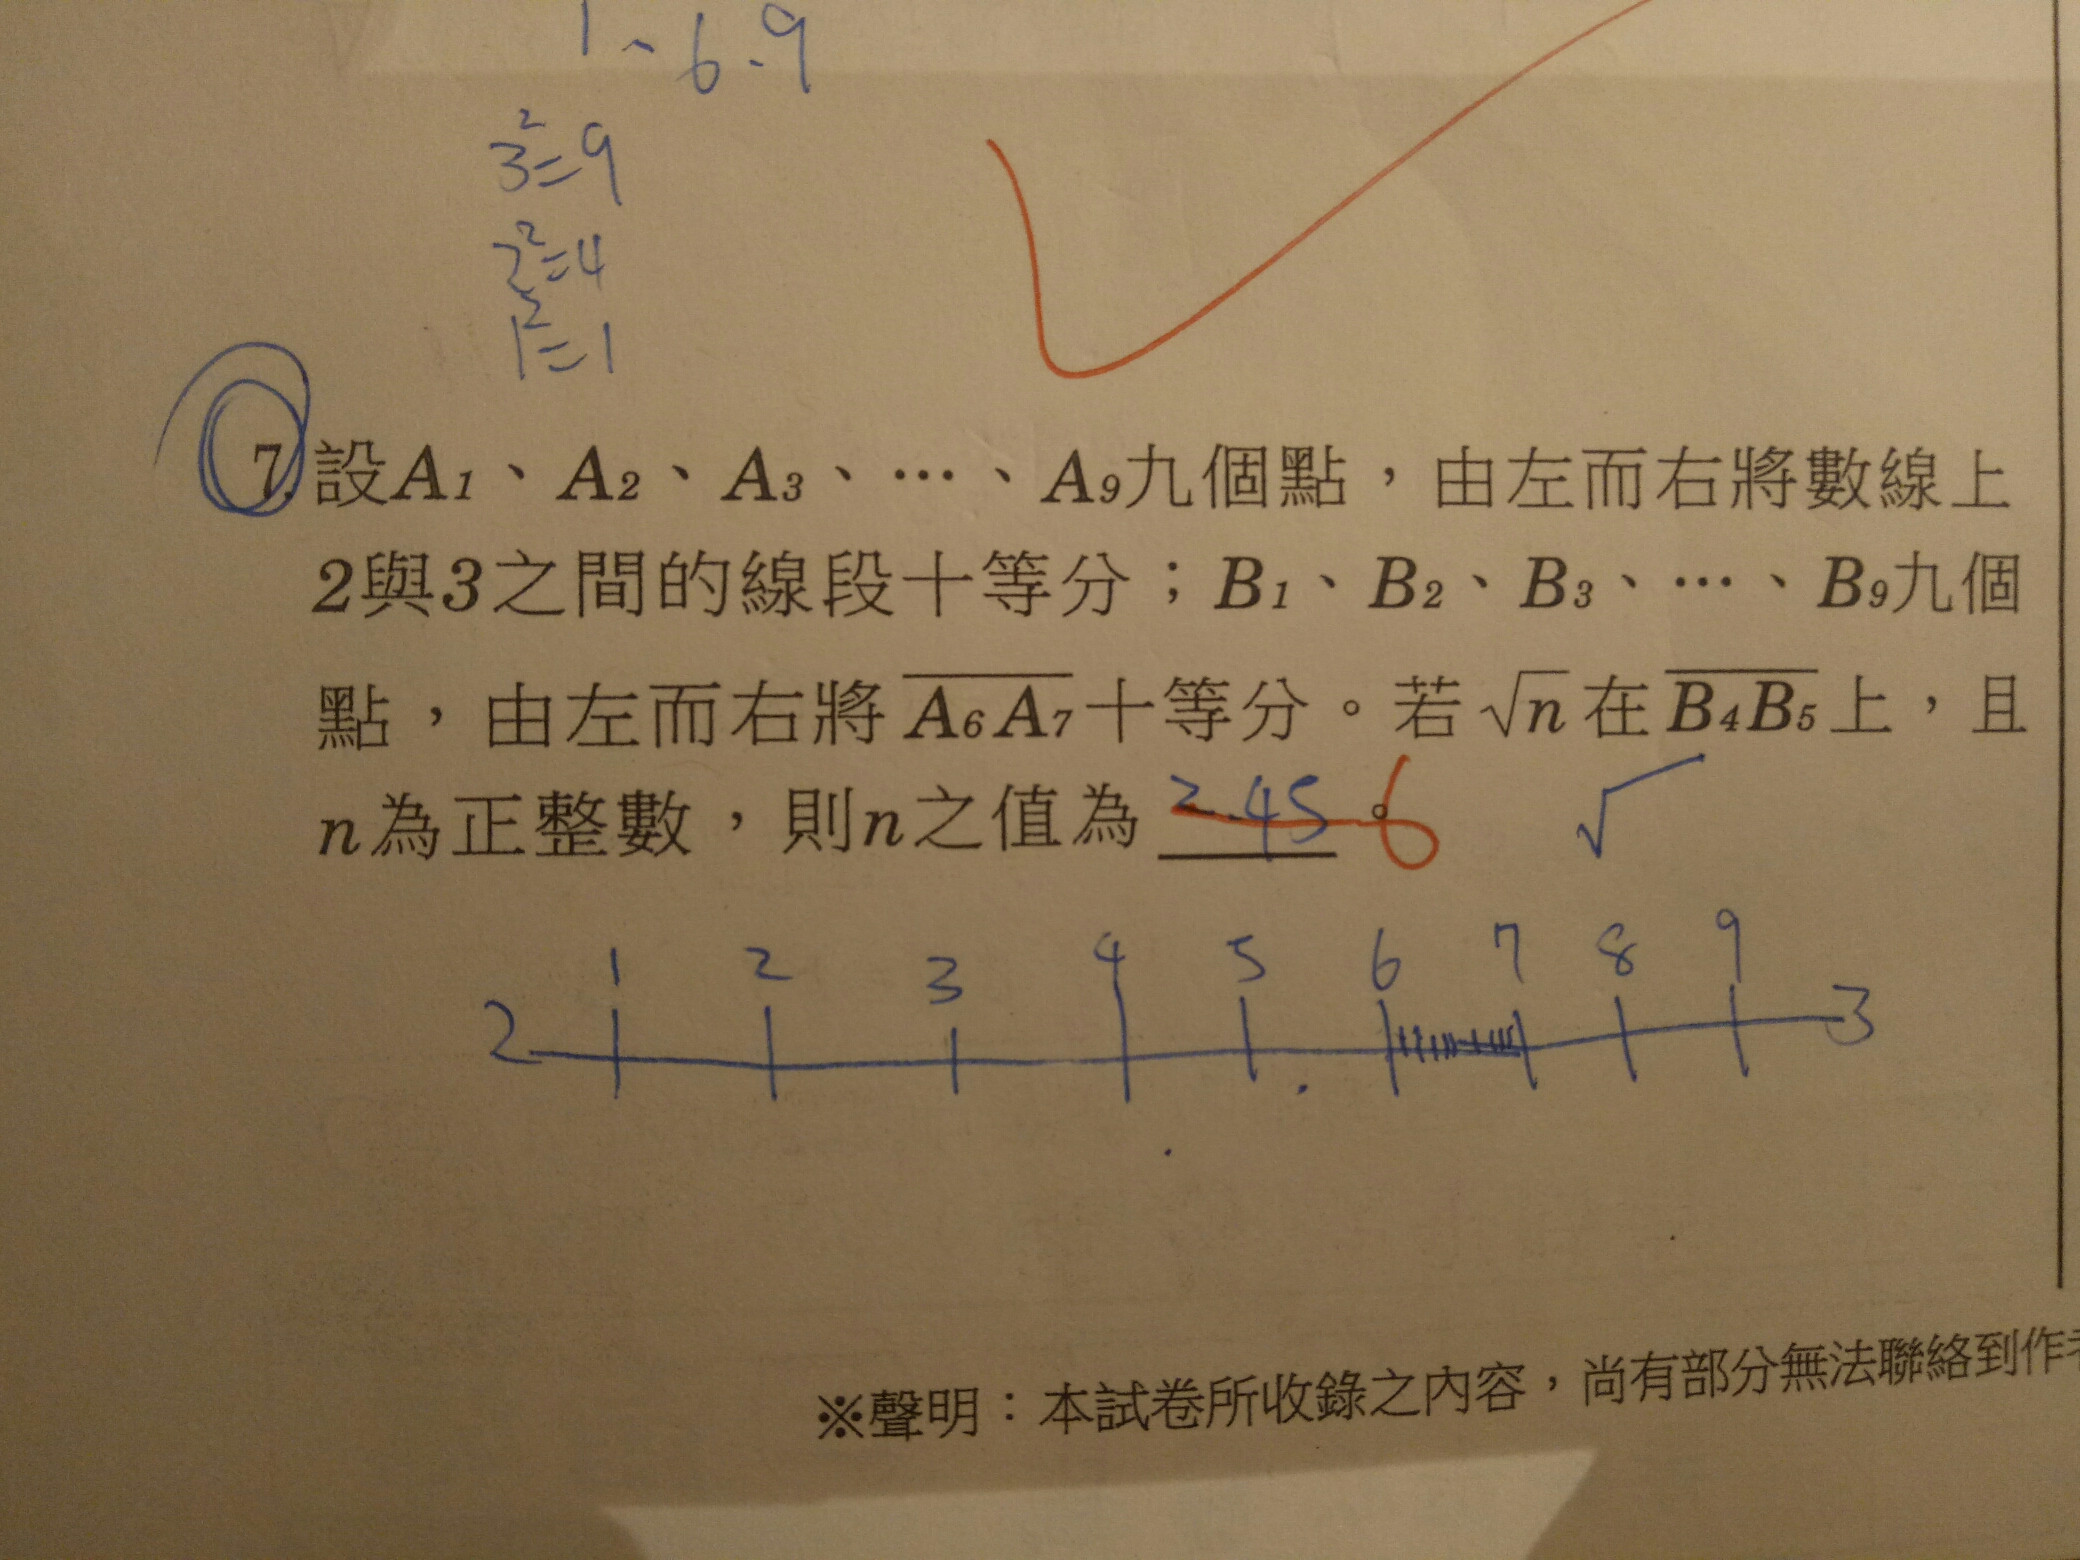 1、6、9
3²=9
2²=4
1²=1
7.設A₁、A₂、A₃、⋯、A₉九個點，由左而右將數線上
2與3之間的線段十等分；B₁、B₂、B₃、⋯、B₉九個
點，由左而右將A₆A₇十等分。若√n在B₄B₅上，且
n為正整數，則n之值為2.45。6 √
1 2 3 4 5 6 7 8 9
2 3
※聲明：本試卷所收錄之內容，尚有部分無法聯絡到作者